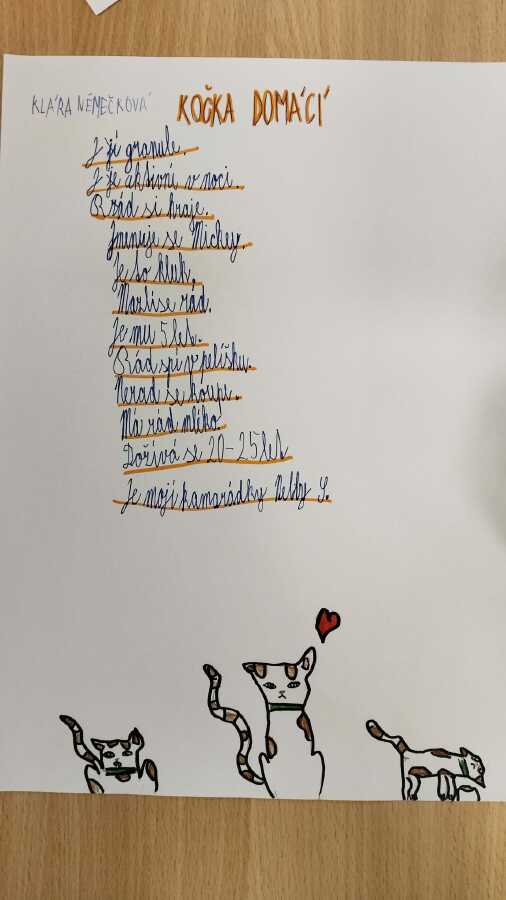 KLÁRA NĚMEČKOVÁ KOČKA DOMÁCÍ
Jí granule.
Je aktivní v noci.
Rád si hraje.
Jmenuje se Mickey.
Je to kluk.
Mazlí se rád.
Je mu 5 let.
Rád spí v pelíšku.
Nerad se koupe.
Má rád mlíko.
Dožívá se 20-25 let
Je mojí kamarádky Nelly S.